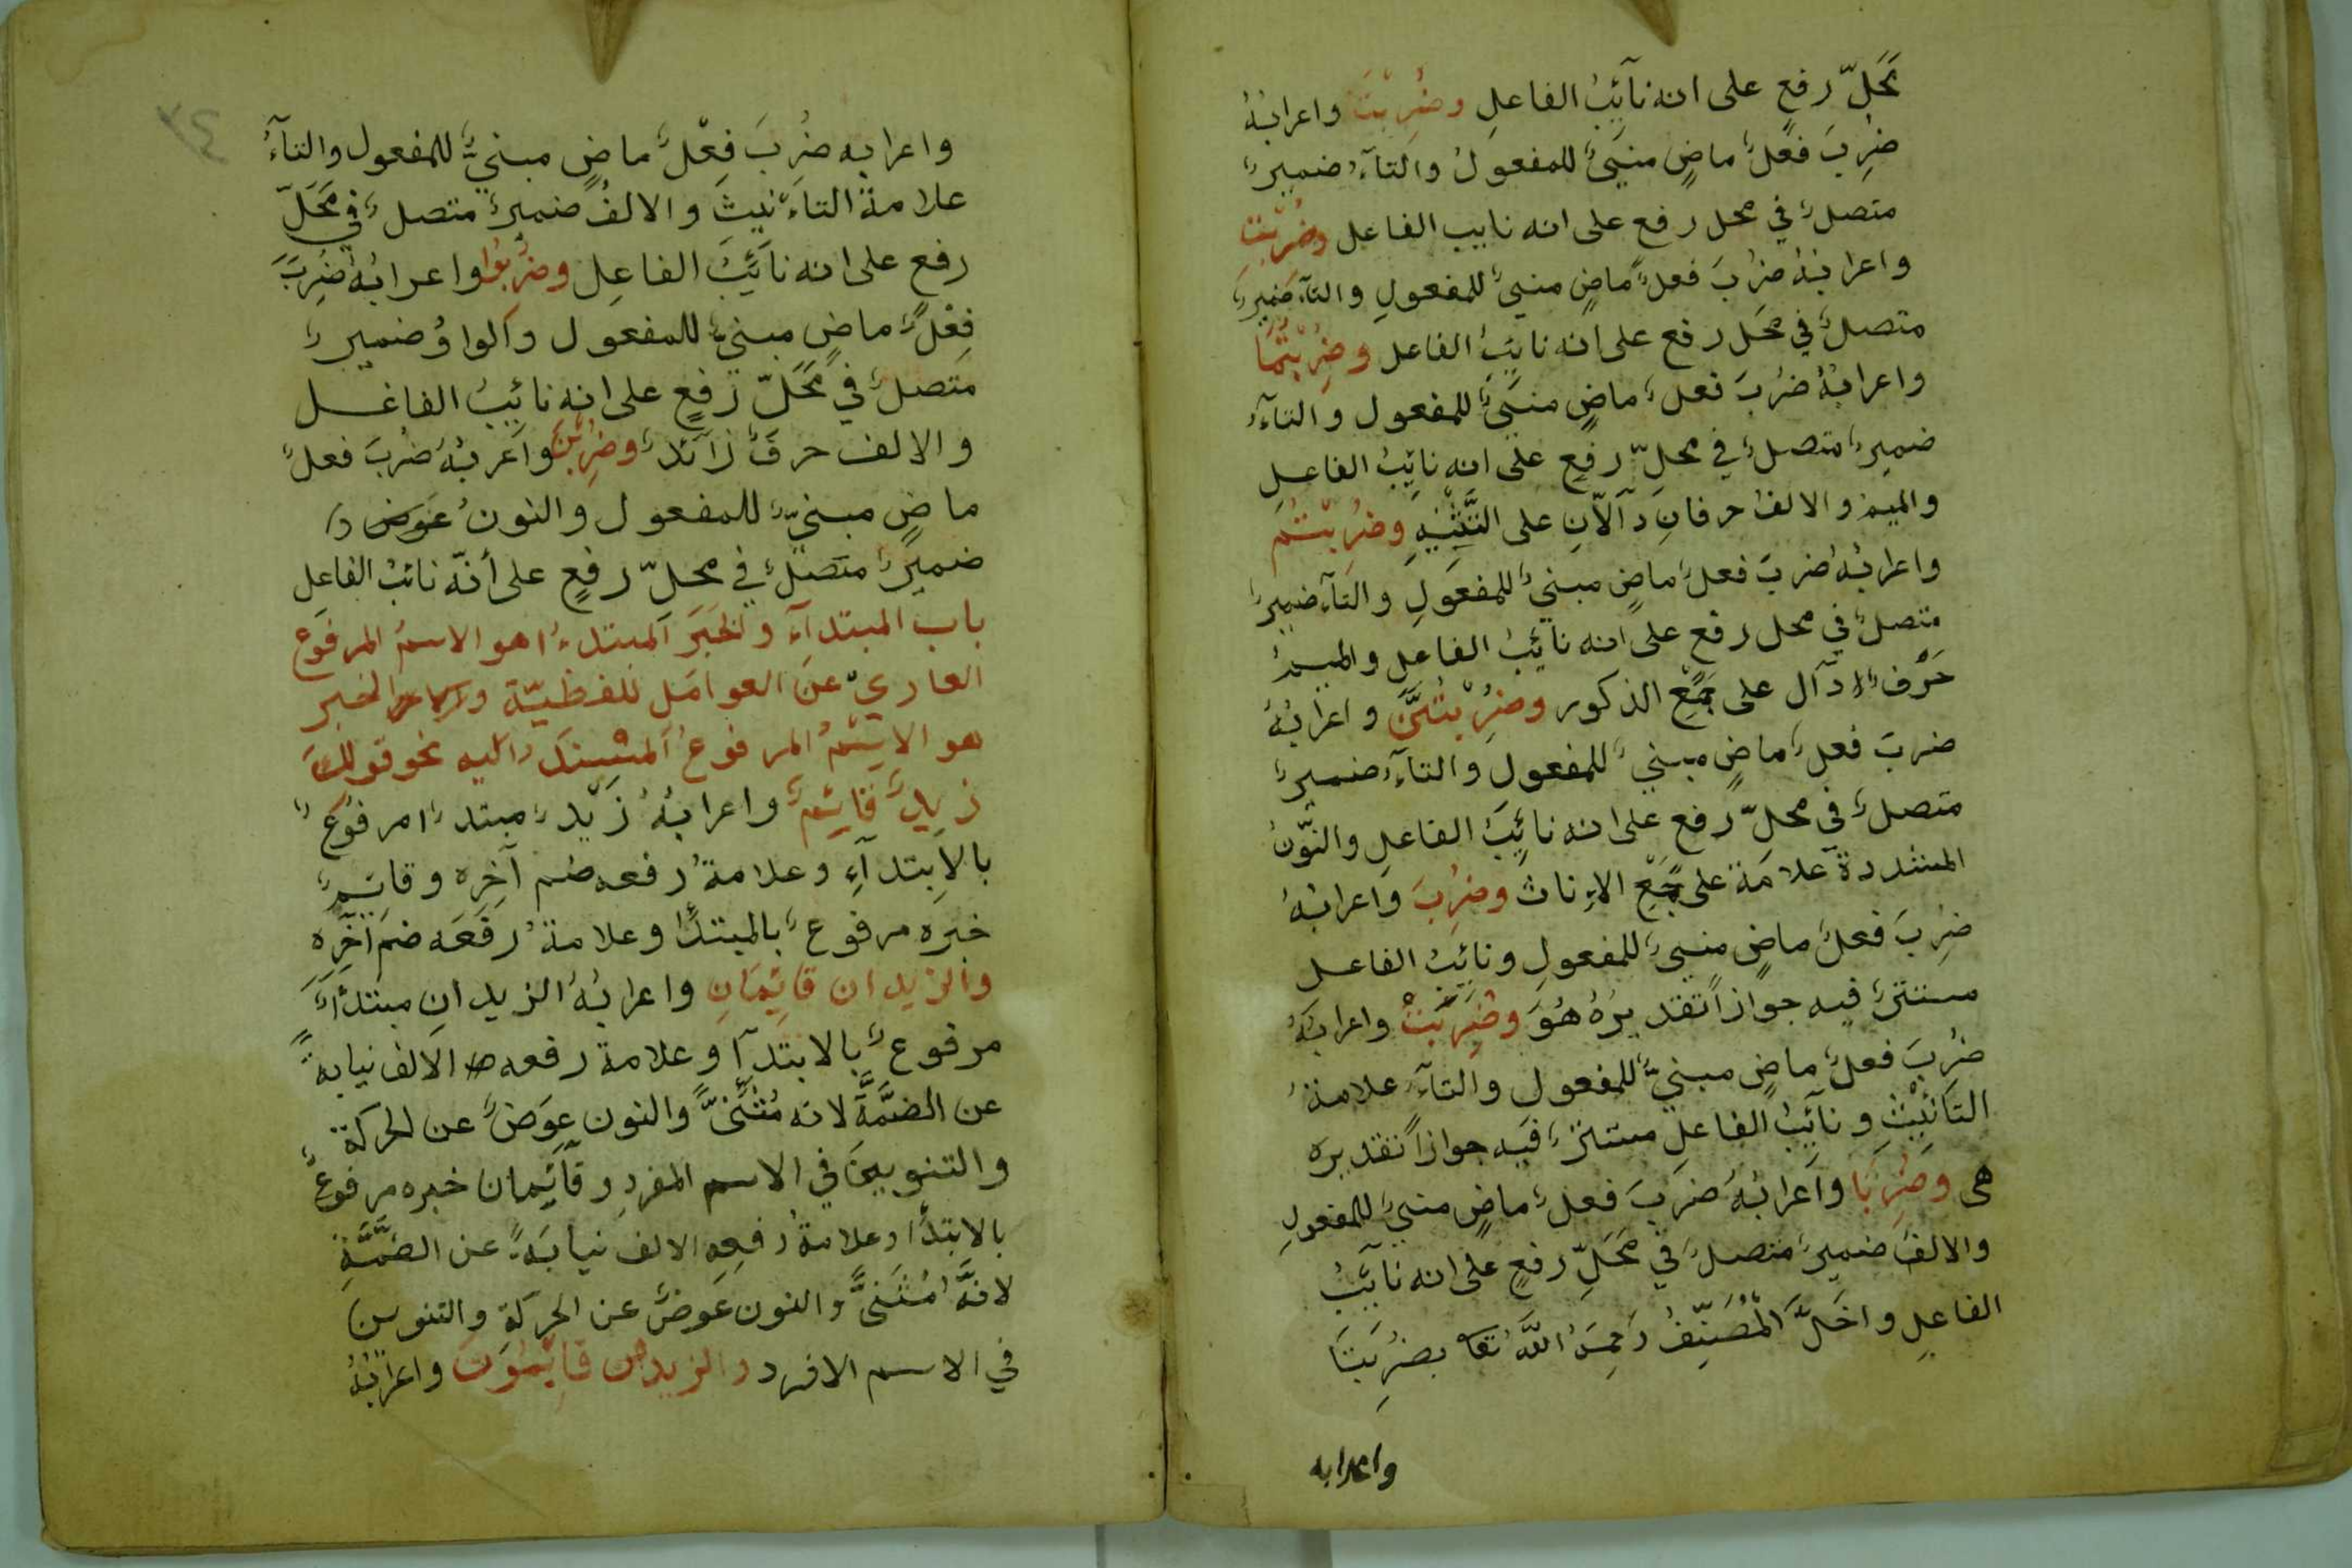 مَحَلّ رفعٍ على انه نآئِبُ الفاعلِ وضُرِبْتَ واعرابُهُ
ضُرِبَ فعلٌ ماضٍ مبنيٌ للمفعولُ والتآءُ ضميرٌ
متصلٌ في محل رفع على انه نايب الفاعل وضُرِبْتِ
واعرابُهُ ضرُبَ فعلٌ ماضٍ مبنيٌ للمفعولِ والتآءُ ضميرٌ
متصلٌ في محَل رفع على انه نايِبُ الفاعل وضُرِبْتُمَا
واعرابُهُ ضرُبَ فعلٌ ماضٍ مبنَيٌ للمفعول والتآءُ
ضميرٌ متصلٌ في محلِّ رفعٍ على انه نايِبُ الفاعلِ
والميمُ والالفُ حرفانِ دآلّانِ على التَّثْنِيَةِ وضُرِبْتُمْ
واعرابُهُ ضربَ فعلٌ ماضٍ مبنيٌ للمفعَولِ والتآءُ ضميرٌ
متصلٌ في محل رفع على انه نآئِبُ الفاعلِ والميمُ
حَرْفٌ دآل على جَمْعِ الذكور وضُرِبْتُنَّ واعرابُهُ
ضربَ فعلٌ ماضٍ مبنيٌ للمفعولِ والتآءُ ضميرٌ
متصلٌ في محلّ رفع على انه نائِبُ الفاعلِ والنّونُ
المشددة علامَة على جَمْعِ الاِناث وضُرِبَ واعرابُهُ
ضرِبَ فعلٌ ماضٍ مبنيٌ للمفعولِ ونايِبُ الفاعل
مستترٌ فيه جوازاً تقديرُهُ هُوَ وضُرِبَتْ واعرابُهُ
ضرُبَ فعلٌ ماضٍ مبنيٌّ للمفعول والتآءُ علامةُ
التأنِيْثِ ونآئِبُ الفاعلِ مستترٌ فيه جوازاً تقديره
هى وَضُرِبَا واعرابُهُ ضرَبَ فعلٌ ماضٍ مبنيٌ للمفعولِ
والالفُ ضميرٌ متصلٌ في مَحَلِّ رفعٍ على انه نآيبُ
الفاعلِ واخَلَّ المُصَنِّفُ رَحِمَهُ اللَّهُ تعا بضُرِبَتَا
واعرابه
واعرابه ضرُبَ فِعْلٌ ماضٍ مبنيٌّ للمفعول والتآءُ
علامة التأنيثِ والالفُ ضميرٌ متصلٌ في مَحَلّ
رفعٍ على انه نآئِبُ الفاعِل وضُرِبُوا واعرابُهُ ضُرِبَ
فِعْلٌ ماضٍ مبنيٌ للمفعول والواوُ ضميرٌ
متصلٌ في مَحَلّ رَفعٍ على انه نائِبُ الفاعل
والالف حرفٌ زآئدٌ وضُرِبْنَ واعربُهُ ضُرِبَ فعلٌ
ماضٍ مبنيٌّ للمفعول والنونُ عَوض
ضميرٌ متَصلٌ في محلّ رفعٍ على أنّه نائبُ الفاعل
باب المبتدآءِ والخَبَرَ المبتدءُا هو الاسمُ المرفوَع
العاريُ عنَ العوامَل للفظيّة والخبر
هو الاِسْمُ المرفوعُ المُسْندُ اليه نحو قولكَ
زيدٌ قايِمٌ واعرابُهُ زَيْدٌ مبتدءٌا مرفوُعٌ
بالاِبتدآءِ وعلامةُ رفعه ضم آخِرِه وقايمٌ
خبره مرفوعٌ بالمبتدَا وعلامةُ رفَعَه ضمَ آخِرِه
والزيدان قائِمَانِ واعرابُهُ الزيدانِ مبتدأٌ
مرفوعٌ بالابتدآ وعلامة رفعه الالف نيابةً
عن الضمَّة لانه مُثنَّىً والنون عِوَضٌ عن الحركة
والتنوينَ في الاسم المفردِ وقآئِمان خبره مرفوعٌ
بالابتدَا وعلامةُ رفعِه الالف نيابَةً عن الضمَّةِ
لانَّهُ مُثَنىً والنون عَوضٌ عن الحركةِ والتنوين
في الاسم الافرد والزيدون قايِمُونَ واعرابُهُ